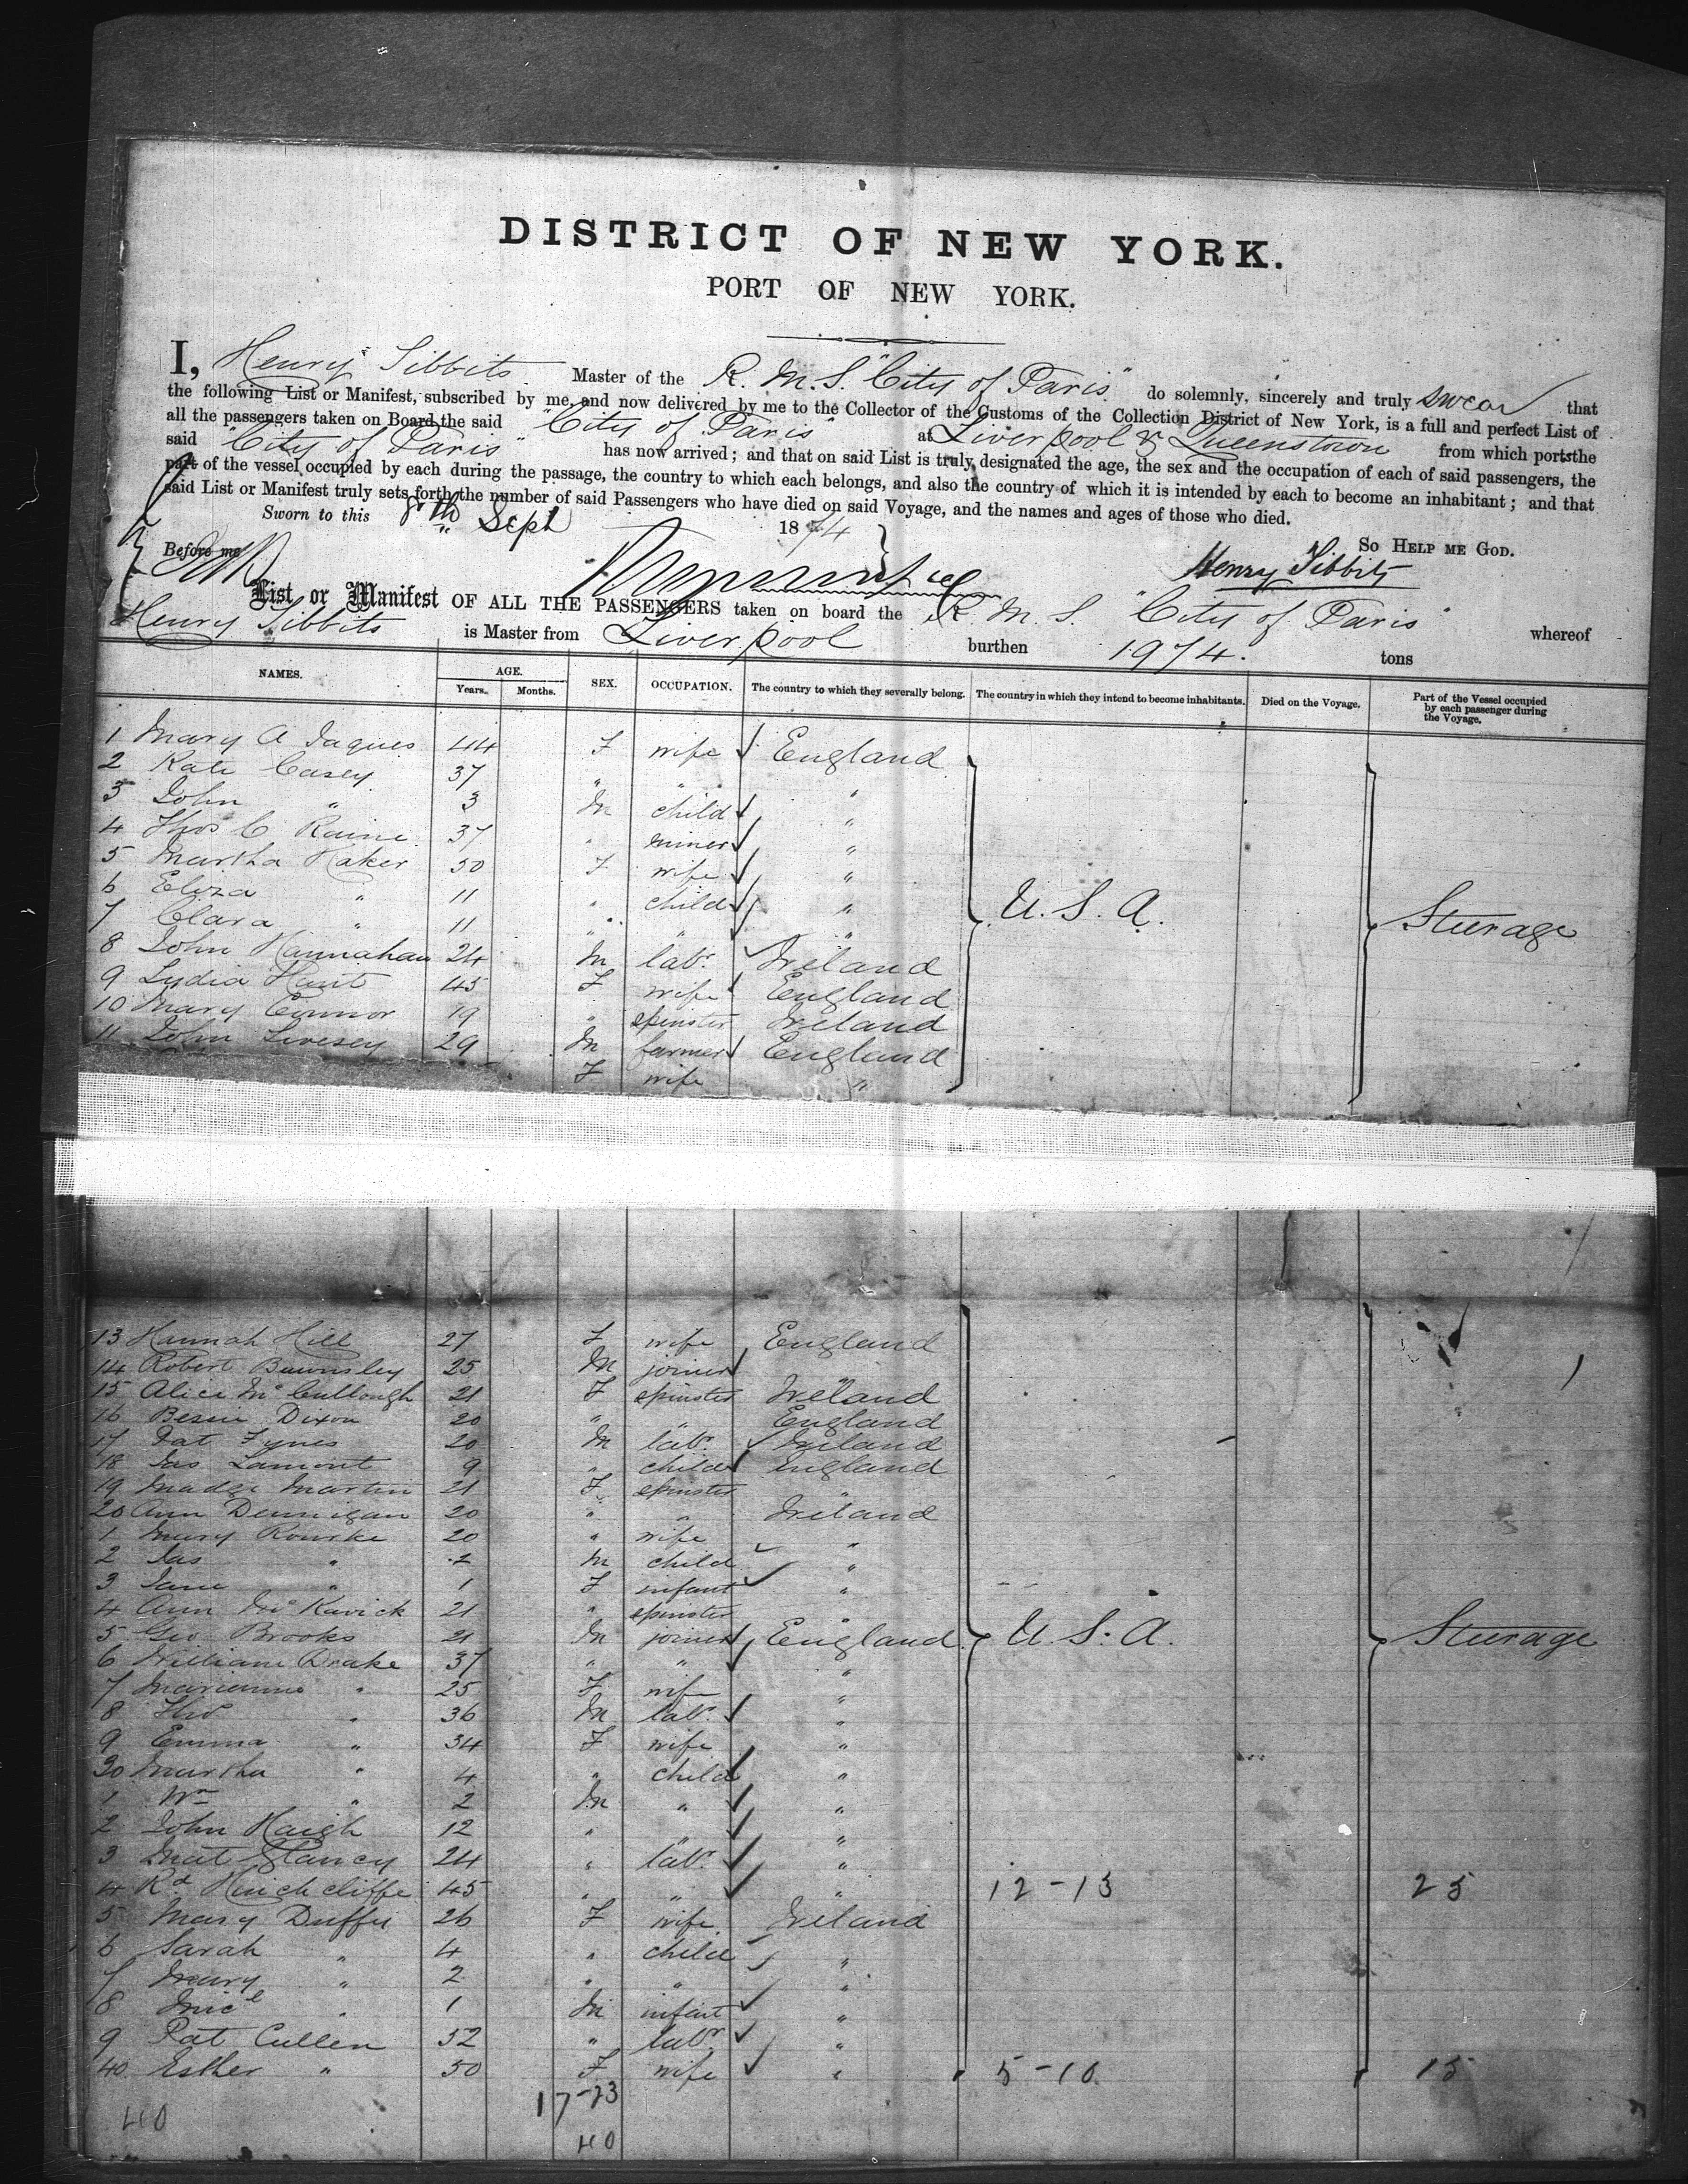 DISTRICT OF NEW YORK.
PORT OF NEW YORK.
I, Henry Tibbits Master of the R. M. S. "City of Paris" do solemnly, sincerely and truly swear that
the following List or Manifest, subscribed by me, and now delivered by me to the Collector of the Customs of the Collection District of New York, is a full and perfect List of
all the passengers taken on Board the said "City of Paris" at Liverpool & Queenstown from which ports the
said "City of Paris" has now arrived; and that on said List is truly designated the age, the sex and the occupation of each of said passengers, the
part of the vessel occupied by each during the passage, the country to which each belongs, and also the country of which it is intended by each to become an inhabitant; and that
said List or Manifest truly sets forth the number of said Passengers who have died on said Voyage, and the names and ages of those who died.
Sworn to this 8th Sept 1874
So Help me God.
Before me
Henry Tibbits
List or Manifest OF ALL THE PASSENGERS taken on board the R. M. S. "City of Paris" whereof
Henry Tibbits is Master from Liverpool burthen 1974. tons
NAMES. AGE. Years. Months. SEX. OCCUPATION. The country to which they severally belong. The country in which they intend to become inhabitants. Died on the Voyage. Part of the Vessel occupied by each passenger during the Voyage.
1 Mary A Jaques 44 F wife England
2 Kate Casey 37 " " "
3 John " 3 M child "
4 Thos C Raine 37 " miner "
5 Martha Haker 50 F wife "
6 Eliza " 11 " child "
7 Clara " 11 " " "
U. S. A. Steerage
8 John Hannahan 24 M labr. Ireland
9 Lydia Hunt 45 F wife England
10 Mary Connor 19 " spinster Ireland
11 John Livesey 29 M farmer England
F wife "
13 Hannah Hill 27 F wife England
14 Robert Bawnsley 25 M joiner "
15 Alice McCullough 21 F spinster Ireland
16 Bessie Dixon 20 " " England
17 Pat Fynes 20 M labr. Ireland
18 Jas Lamont 9 " child England
19 Madge Martin 21 F spinster "
20 Ann Dennigan 20 " " Ireland
1 Mary Rourke 20 " wife "
2 Jas " 2 M child "
3 Jane " 1 F infant "
4 Ann McKavick 21 " spinster "
5 Geo Brooks 21 M joiner England U. S. A. Steerage
6 William Drake 37 " " "
7 Marianne " 25 F wife "
8 Thos " 36 M labr. "
9 Emma " 34 F wife "
30 Martha " 4 " child "
1 Wm " 2 M " "
2 John Haigh 12 " " "
3 Mat Glancy 24 " labr. "
4 Rd Hinchcliffe 45 " " " 12-13 25
5 Mary Duffie 26 F wife Ireland
6 Sarah " 4 " child "
7 Mary " 2 " " "
8 Micl " 1 M infant "
9 Pat Cullen 52 " labr "
40 Esther " 50 F wife " 5-10 15
17-23
40 40